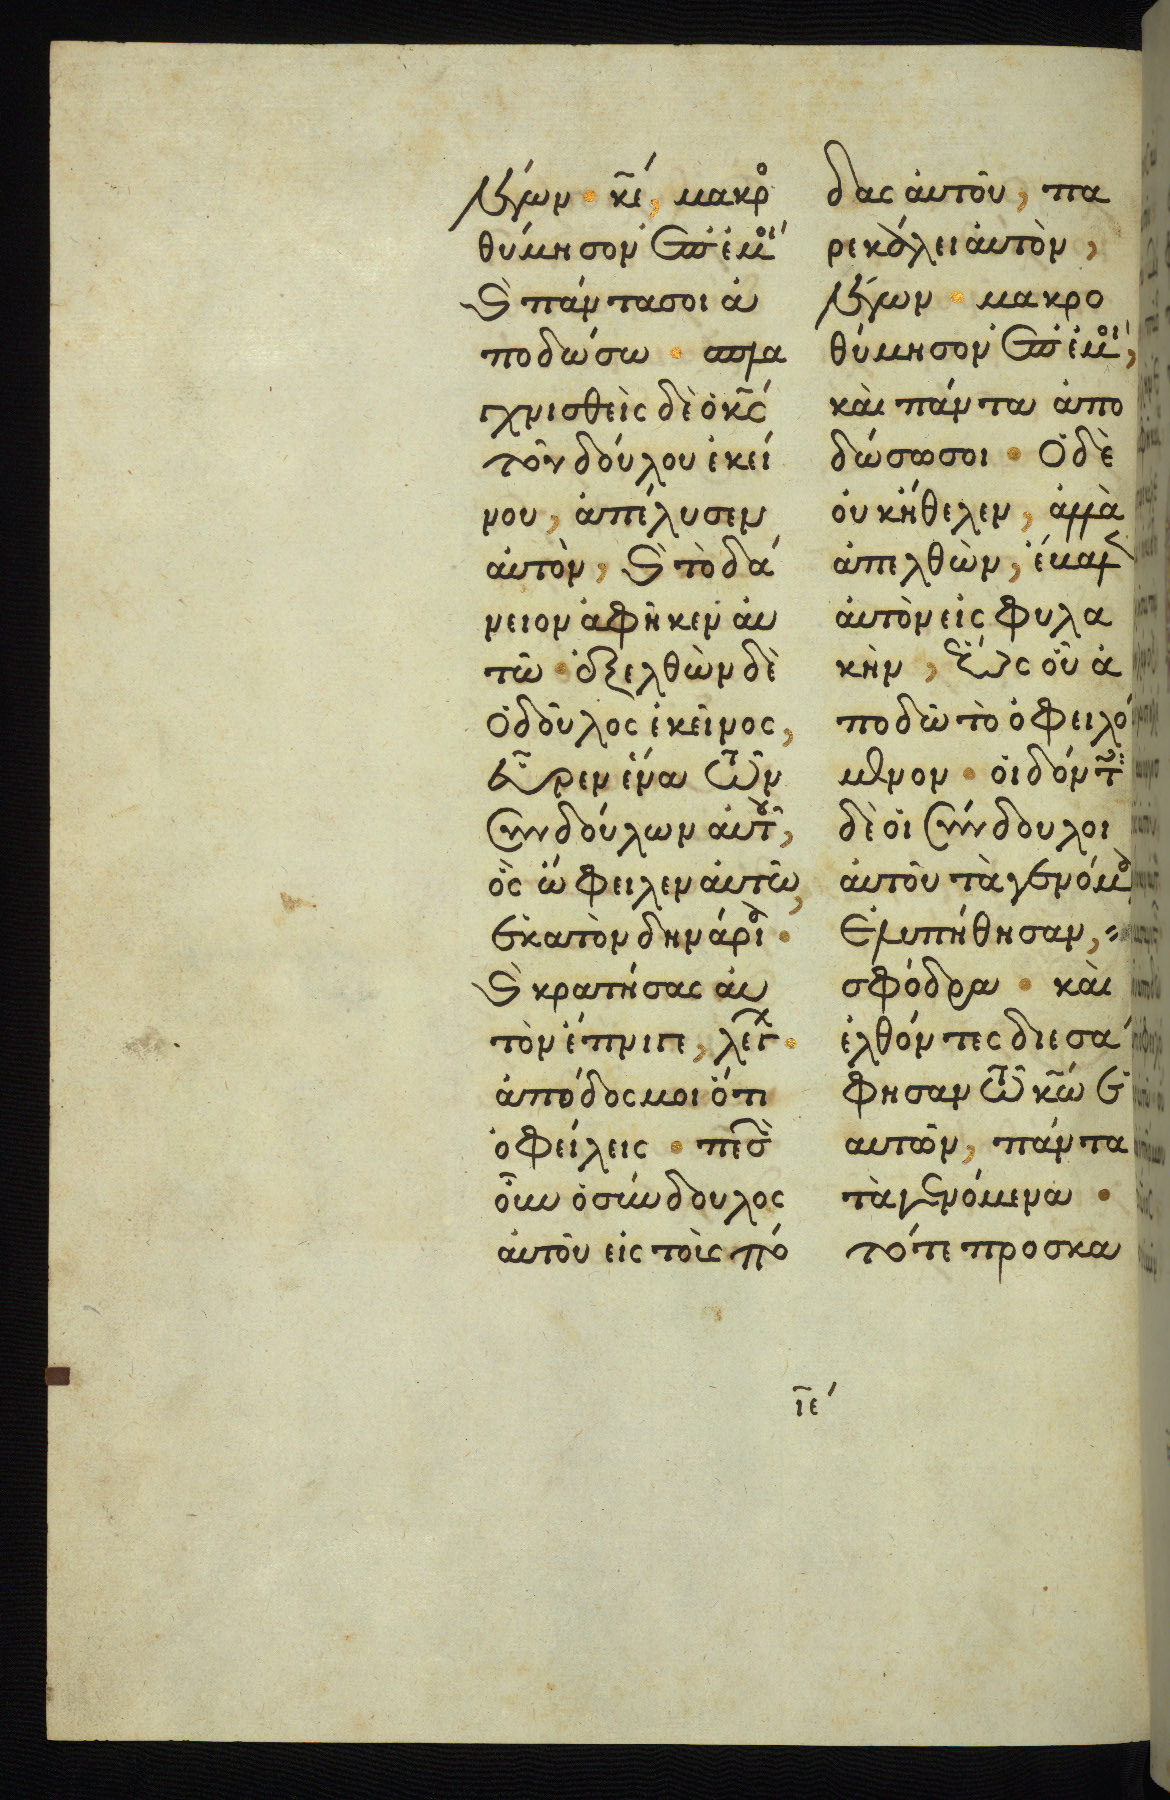 λέγων · κ̅ε, μακρο
θύμησον ἐπ' ἐμοί
καὶ πάντα σοι ἀ
ποδώσω · σπλα
γχνισθεὶς δὲ ὁ κ̅ς
τοῦ δούλου ἐκεί
νου, ἀπέλυσεν
αὐτὸν, καὶ τὸ δά
νειον ἀφῆκεν αὐ
τῶ · ἐξελθὼν δὲ
ὁ δοῦλος ἐκεῖνος,
εὗρεν ἕνα τῶν
συνδούλων αὐτοῦ,
ὃς ὤφειλεν αὐτῶ,
ἑκατὸν δηνάρια ·
καὶ κρατήσας αὐ
τὸν ἔπνιγε, λέγων ·
ἀπόδος μοι ὅτι
ὀφείλεις · πεσὼν
οὖν ὁ σύνδουλος
αὐτοῦ εἰς τοὺς πό
δας αὐτοῦ, πα
ρεκάλει αὐτὸν,
λέγων · μακρο
θύμησον ἐπ' ἐμοί,
καὶ πάντα ἀπο
δώσω σοι · Ὁ δὲ
οὐκ ἤθελεν, ἀλλὰ
ἀπελθὼν, ἔβαλεν
αὐτὸν εἰς φυλα
κὴν, ἕως οὗ ἀ
ποδῶ τὸ ὀφειλό
μενον · ἰδόντες
δὲ οἱ σύνδουλοι
αὐτοῦ τὰ γενόμενα
ἐλυπήθησαν,
σφόδρα · καὶ
ἐλθόντες διεσά
φησαν τῶ κ̅ω ἑ
αυτῶν, πάντα
τὰ γενόμενα ·
τότε προσκα
ιε